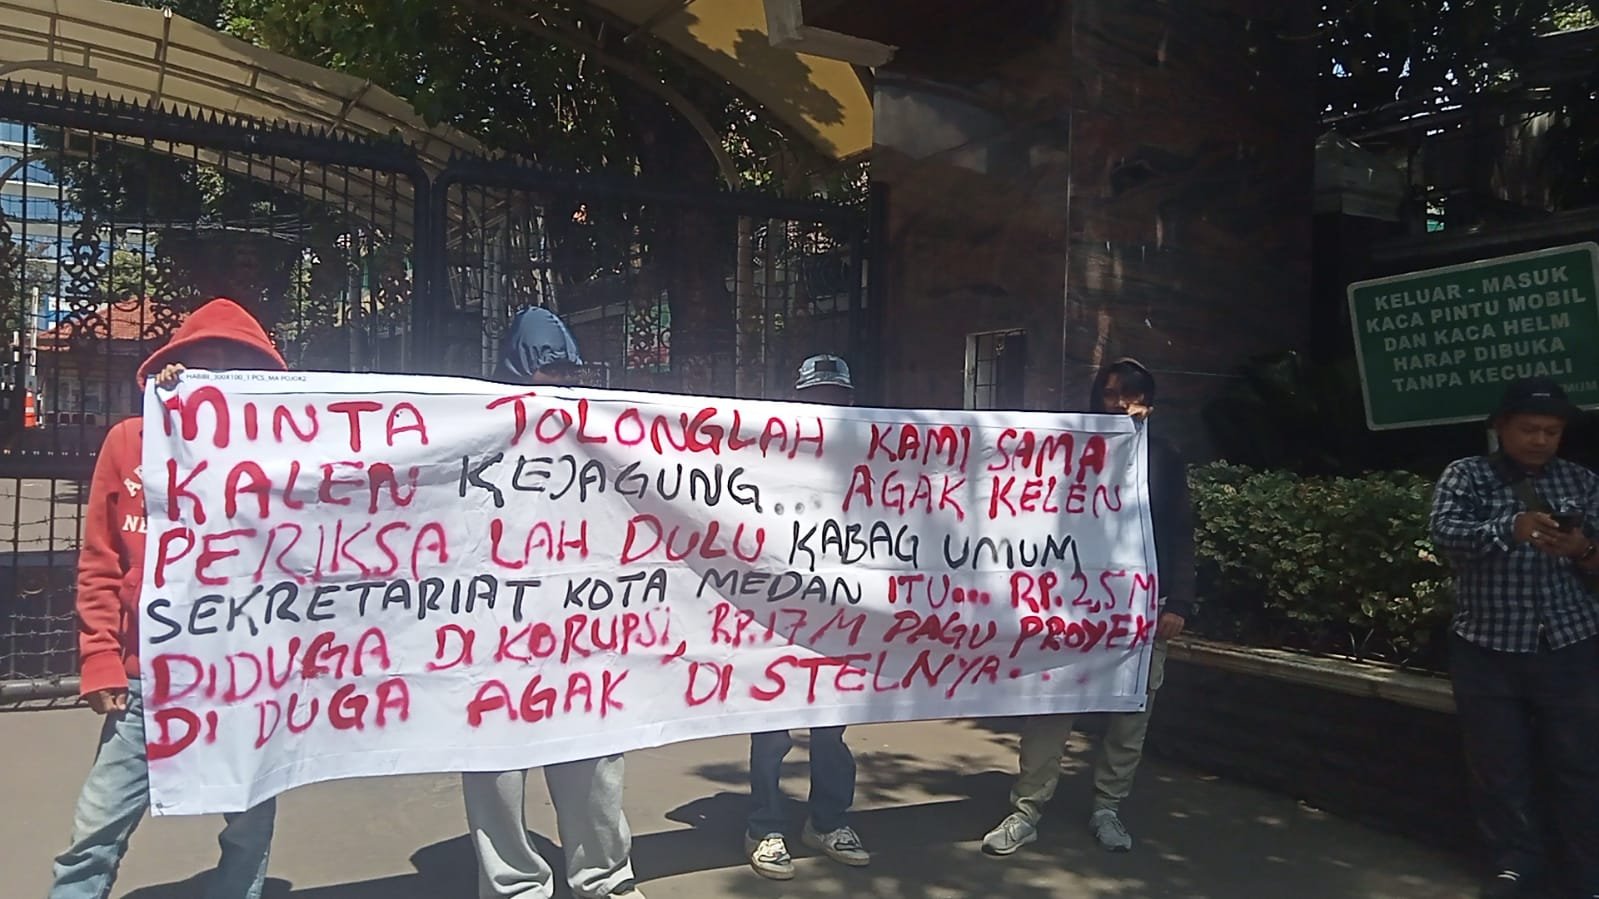 HABIBI_300X100_1 PCS_MA POJOK2
MINTA TOLONGLAH KAMI SAMA
KALEN KEJAGUNG... AGAK KELEN
PERIKSA LAH DULU KABAG UMUM
SEKRETARIAT KOTA MEDAN ITU... RP.2,5M
DIDUGA DI KORUPSI, RP.17M PAGU PROYEK
DI DUGA AGAK DI STELNYA...
KELUAR - MASUK
KACA PINTU MOBIL
DAN KACA HELM
HARAP DIBUKA
TANPA KECUALI